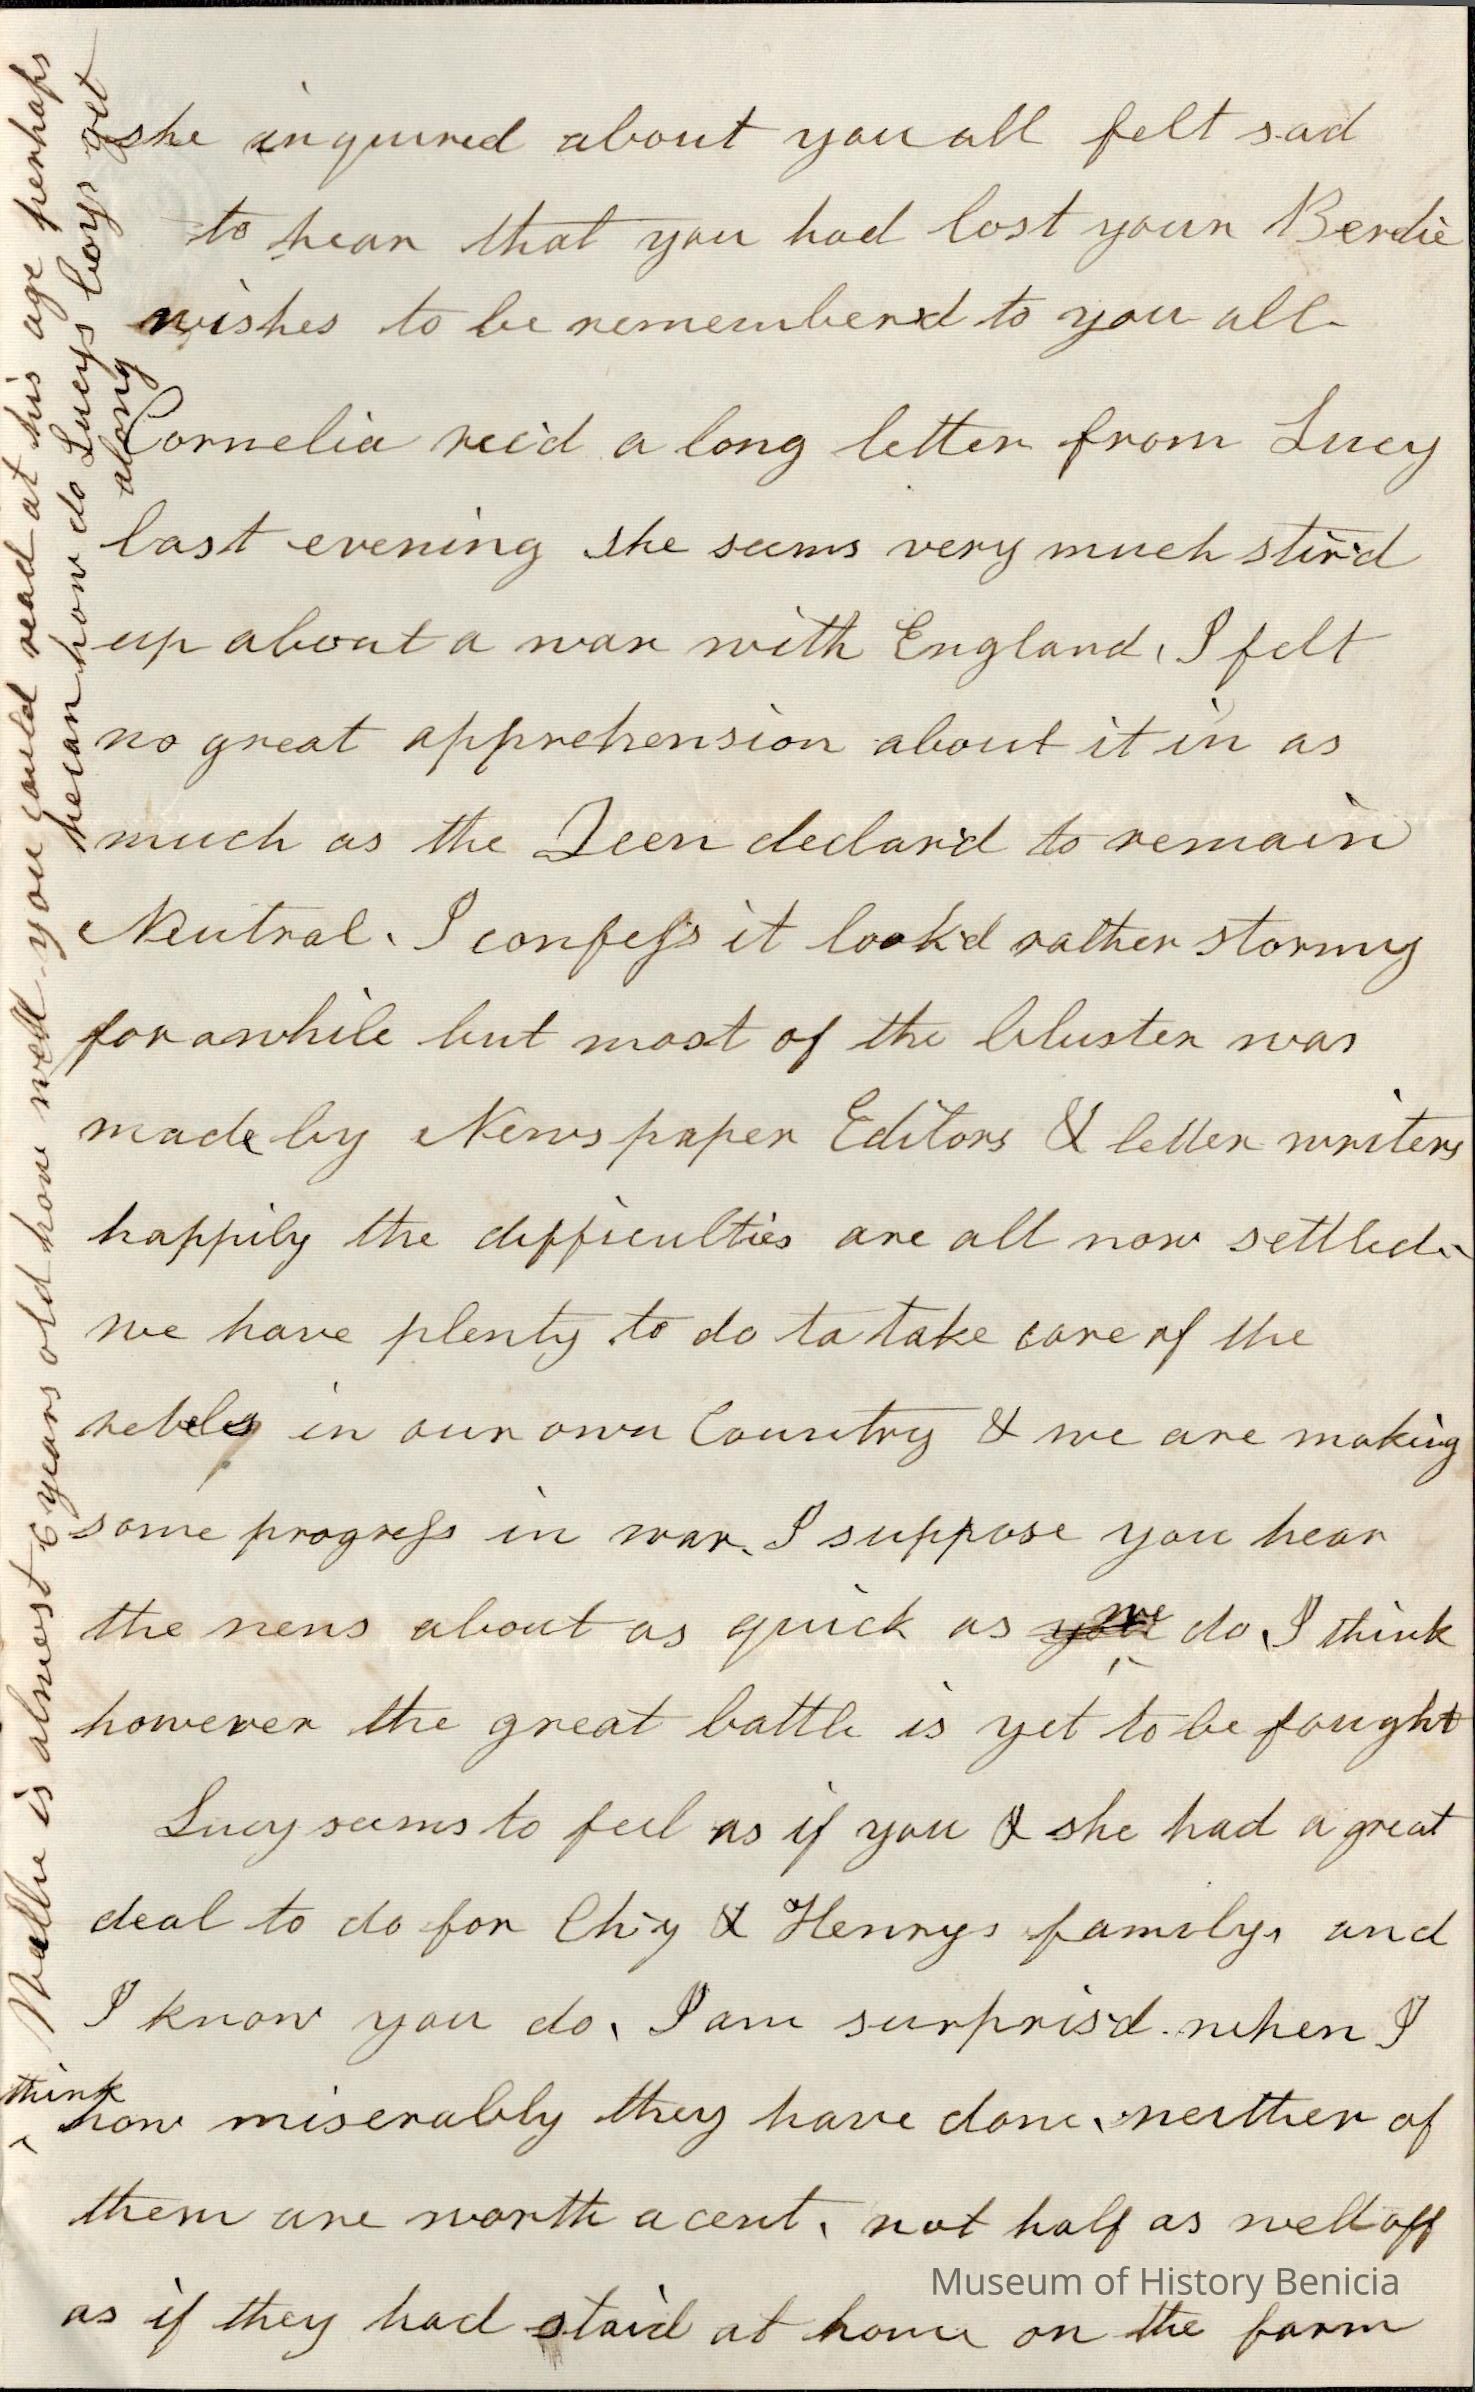 she inquired about you all felt sad
to hear that you had lost your Berdie
wishes to be rememberd to you all
Cornelia rec'd a long letter from Lucy
last evening she seems very much stir'd
up about a war with England, I felt
no great apprehension about it in as
much as the Qeen declar'd to remain
Neutral. I confess it look'd rather stormy
for awhile but most of the bluster was
made by News paper Editors & letter writers
happily the difficulties are all now settled.
we have plenty to do to take care of the
rebels in our own Country & we are making
some progress in war. I suppose you hear
the news about as quick as you we do, I think
however the great battle is yet to be fought
Lucy seems to feel as if you & she had a great
deal to do for Ch'y & Henrys familys and
I know you do, I am surpris'd when I
think
how miserably they have done, neither of
them are worth a cent, not half as well off
as if they had staid at home on the farm
is almost 6 years old how well you could read at his age perhaps
he can how do Lucys boys get
along
Museum of History Benicia